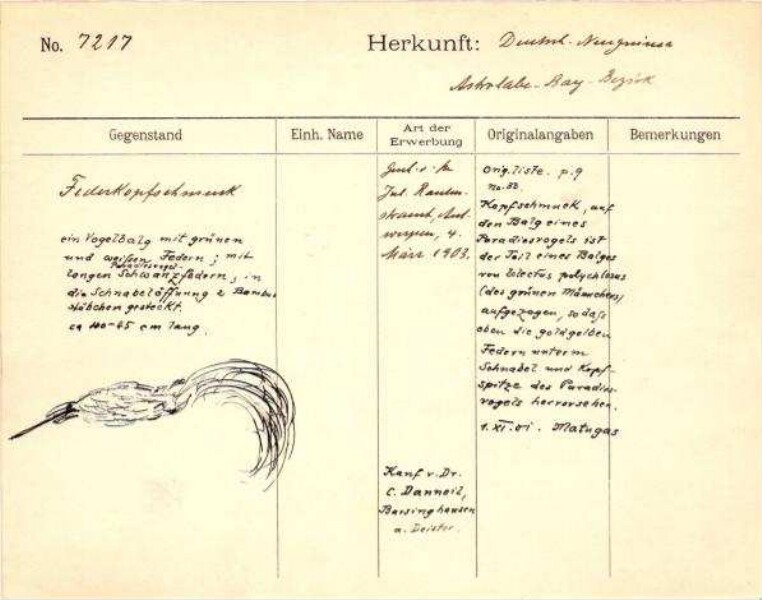 No. 7217
Herkunft: Deutsch-Neuguinea
Astrolabe-Bay-Bezirk
Gegenstand
Einh. Name
Art der
Erwerbung
Originalangaben
Bemerkungen
Federkopfschmuck
ein Vogelbalg mit grünen
und weißen Federn; mit
Paradiesvogel-
langen Schwanzfedern, in
die Schnabelöffnung 2 Bambus
stäbchen gesteckt.
ca 40-45 cm lang.
Jul. Rauten-
strauch, Ant-
werpen, 4.
März 1903.
Kauf v. Dr.
C. Danneil,
Barsinghausen
a. Deister.
Orig. liste. p. 9
No. 38.
Kopfschmuck, auf
den Balg eines
Paradiesvogels ist
der Teil eines Balges
von Eclectus polychlorus
(des grünen Männchens)
aufgezogen, sodaß
eben die goldgelben
Federn unterm
Schnabel und Kopf-
spitze des Paradies-
vogels hervorsehen.
1. XI. 01. Matugas